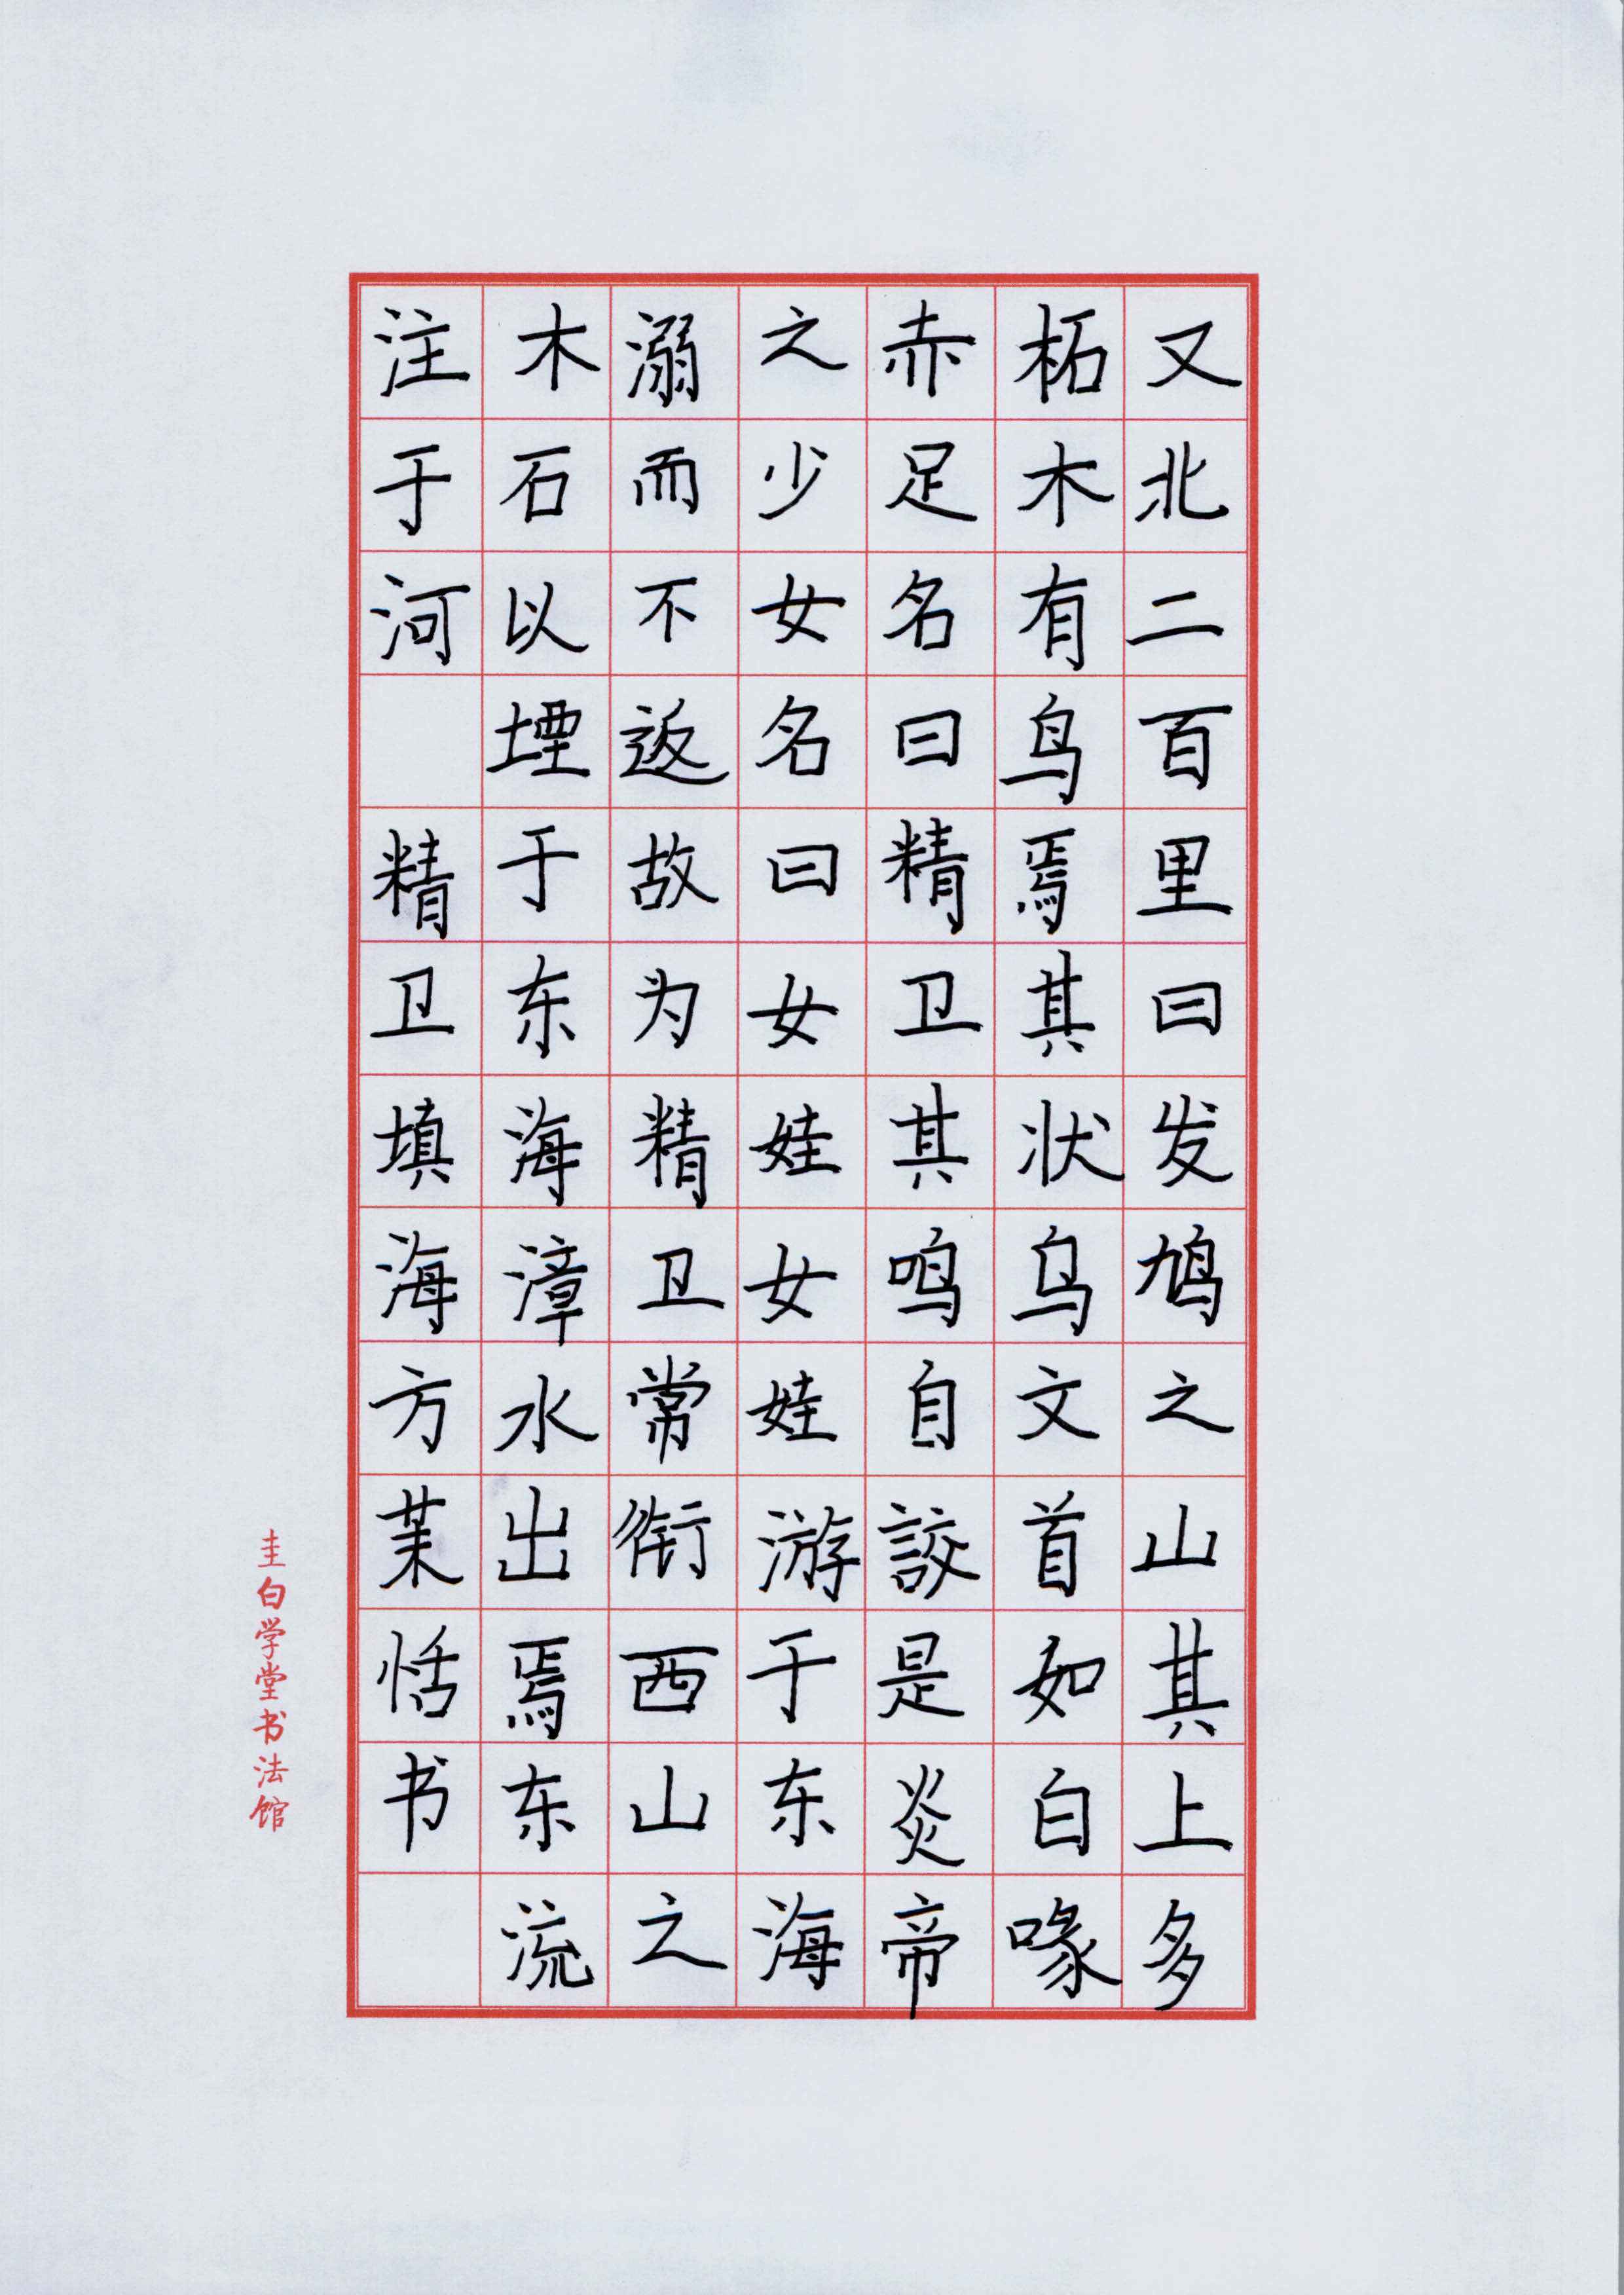 又北二百里曰发鸠之山其上多
柘木有鸟焉其状乌文首如白喙
赤足名曰精卫其鸣自詨是炎帝
之少女名曰女娃女娃游于东海
溺而不返故为精卫常衔西山之
木石以堙于东海漳水出焉东流
注于河 精卫填海方茉恬书
圭白学堂书法馆